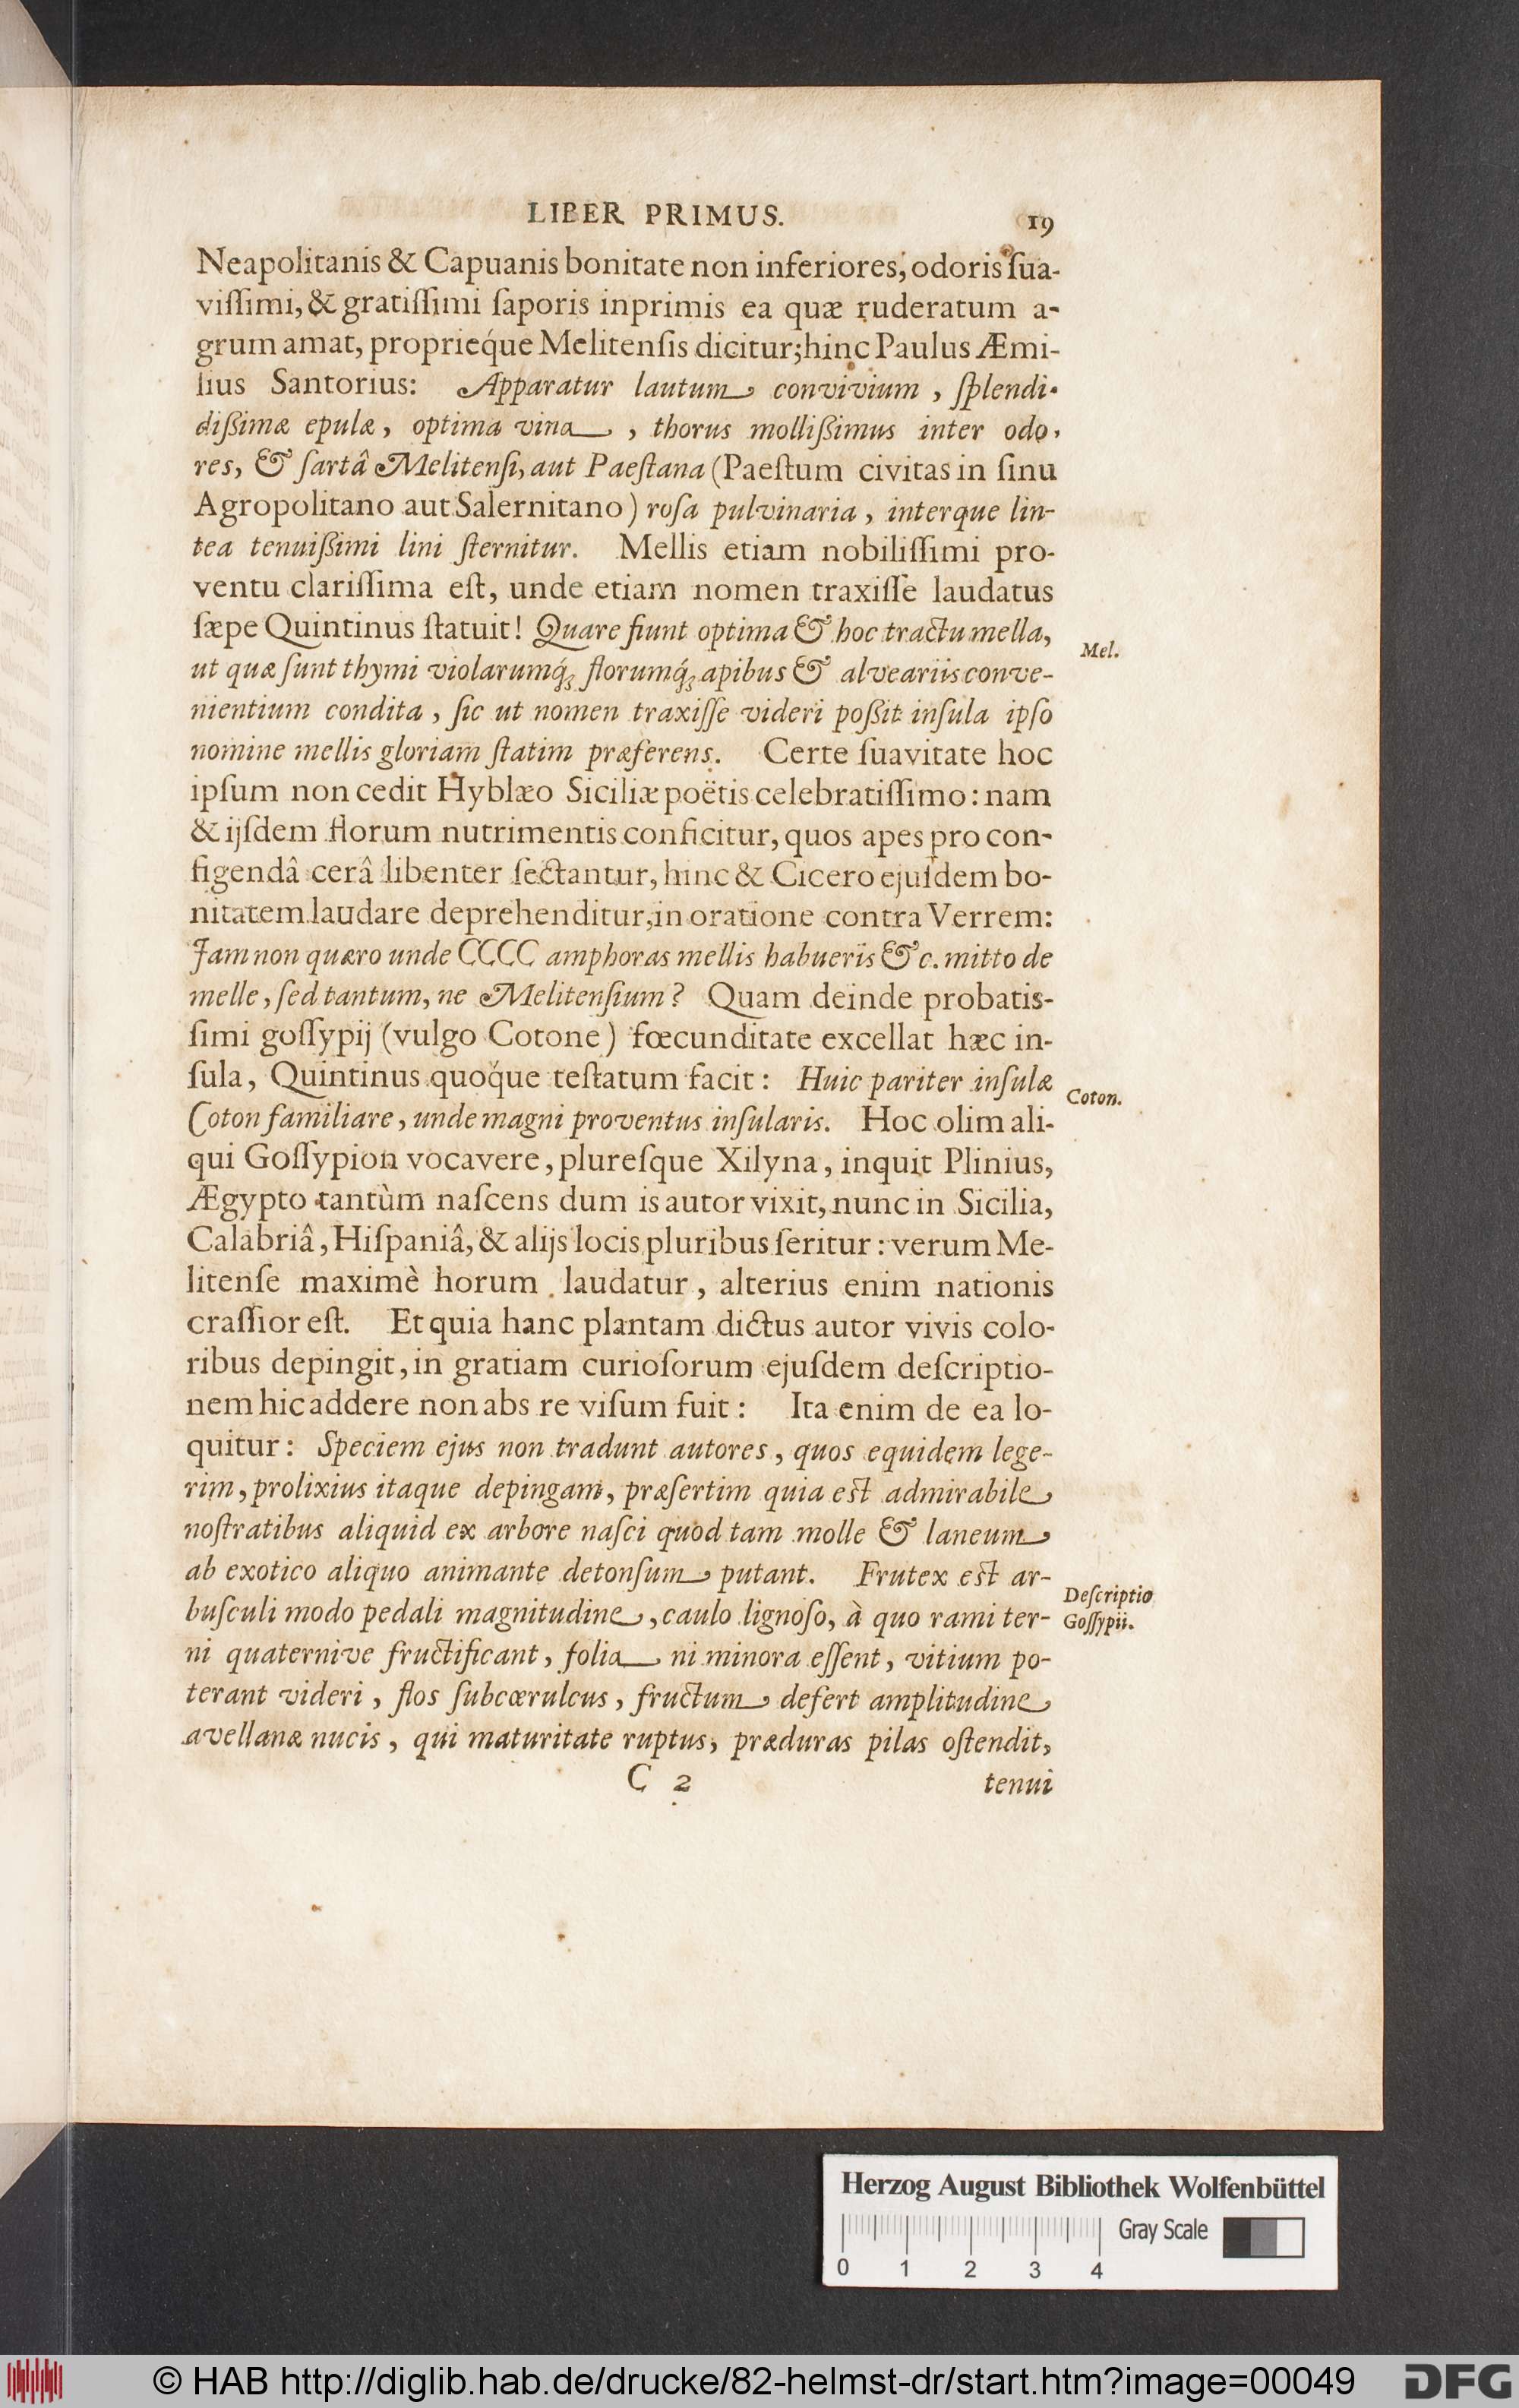 LIBER PRIMUS. 19
Neapolitanis & Capuanis bonitate non inferiores, odoris ſua-
viſſimi, & gratiſſimi ſaporis inprimis ea quæ ruderatum a-
grum amat, proprieq́ue Melitenſis dicitur; hinc Paulus Æmi-
lius Santorius: Apparatur lautum convivium, ſplendi-
dißimæ epulæ, optima vina, thorus mollißimus inter odo-
res, & ſartâ Melitenſi, aut Paeſtana (Paeſtum civitas in ſinu
Agropolitano aut Salernitano) roſa pulvinaria, interque lin-
tea tenuißimi lini ſternitur. Mellis etiam nobiliſſimi pro-
ventu clariſſima eſt, unde etiam nomen traxiſſe laudatus
ſæpe Quintinus ſtatuit! Quare fiunt optima & hoc tractu mella,
Mel.
ut quæ ſunt thymi violarumq́; florumq́; apibus & alveariis conve-
nientium condita, ſic ut nomen traxiſſe videri poßit inſula ipſo
nomine mellis gloriam ſtatim præferens. Certe ſuavitate hoc
ipſum non cedit Hyblæo Siciliæ poëtis celebratiſſimo: nam
& ijſdem florum nutrimentis conficitur, quos apes pro con-
figendâ cerâ libenter ſectantur, hinc & Cicero ejuſdem bo-
nitatem laudare deprehenditur, in oratione contra Verrem:
Jam non quæro unde CCCC amphoras mellis habueris &c. mitto de
melle, ſed tantum, ne Melitenſium? Quam deinde probatis-
ſimi goſſypij (vulgo Cotone) fœcunditate excellat hæc in-
ſula, Quintinus quoq́ue teſtatum facit: Huic pariter inſulæ
Coton.
Coton familiare, unde magni proventus inſularis. Hoc olim ali-
qui Goſſypion vocavere, pluresque Xilyna, inquit Plinius,
Ægypto tantùm naſcens dum is autor vixit, nunc in Sicilia,
Calabriâ, Hiſpaniâ, & alijs locis pluribus ſeritur: verum Me-
litenſe maximè horum laudatur, alterius enim nationis
craſſior eſt. Et quia hanc plantam dictus autor vivis colo-
ribus depingit, in gratiam curioſorum ejuſdem deſcriptio-
nem hic addere non abs re viſum fuit: Ita enim de ea lo-
quitur: Speciem ejus non tradunt autores, quos equidem lege-
rim, prolixius itaque depingam, præſertim quia eſt admirabile
noſtratibus aliquid ex arbore naſci quod tam molle & laneum
ab exotico aliquo animante detonſum putant. Frutex eſt ar-
Deſcriptio
buſculi modo pedali magnitudine, caulo lignoſo, à quo rami ter-
Goſſypii.
ni quaternive fructificant, folia ni minora eſſent, vitium po-
terant videri, flos ſubcœruleus, fructum defert amplitudine
avellanæ nucis, qui maturitate ruptus, præduras pilas oſtendit,
C 2 tenui
Herzog August Bibliothek Wolfenbüttel
Gray Scale
0 1 2 3 4
© HAB http://diglib.hab.de/drucke/82-helmst-dr/start.htm?image=00049
DFG